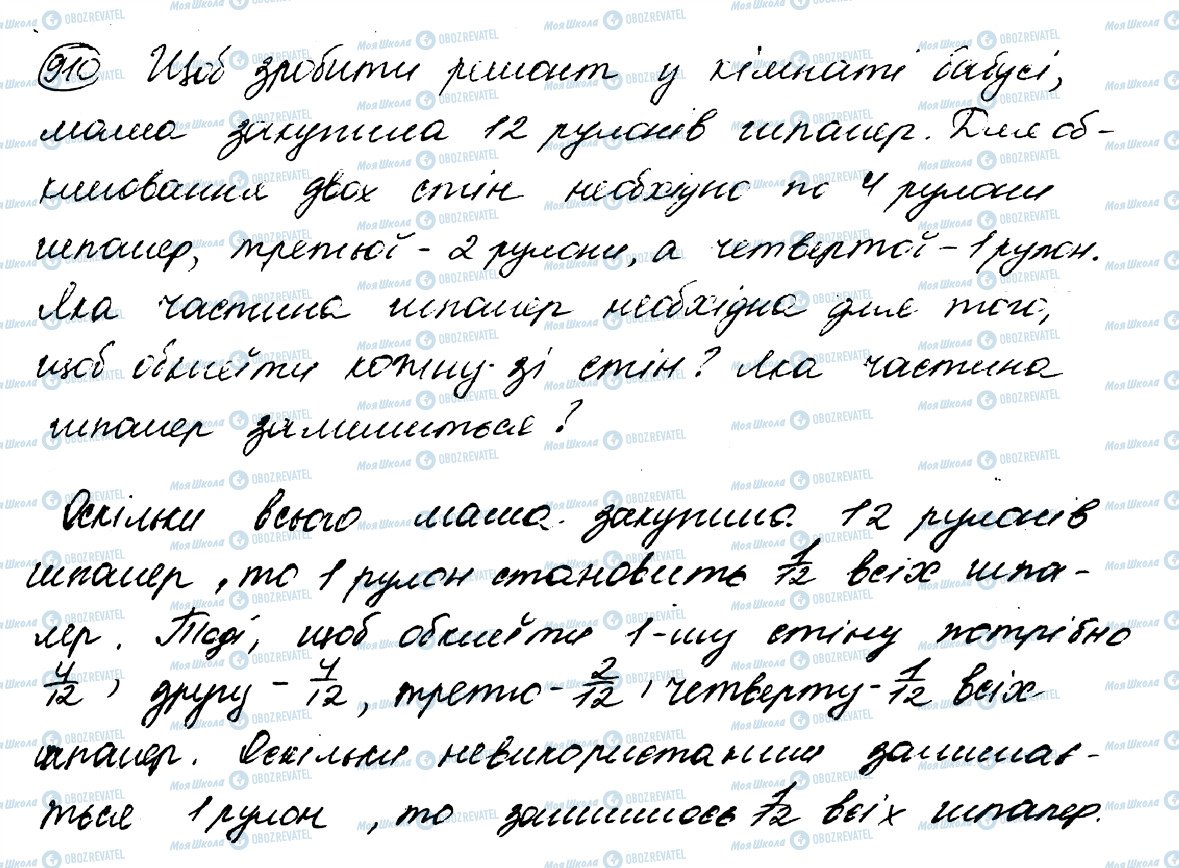 910 Щоб зробити ремонт у кімнаті бабусі,
мама закупила 12 рулонів шпалер. Для об-
клеювання двох стін необхідно по 4 рулони
шпалер, третьої - 2 рулони, а четвертої - 1 рулон.
Яка частина шпалер необхідна для того,
щоб обклеїти кожну зі стін? Яка частина
шпалер залишиться?
Оскільки всього мама закупила 12 рулонів
шпалер, то 1 рулон становить 1/12 всіх шпа-
лер. Тоді, щоб обклеїти 1-шу стіну потрібно
4/12, другу - 4/12, третю - 2/12, четверту - 1/12 всіх
шпалер. Оскільки невикористаним залишає-
ться 1 рулон, то залишилось 1/12 всіх шпалер.